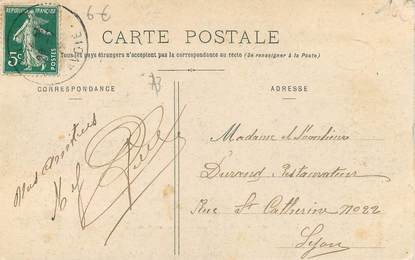 6 €
REPUBLIQUE FRANÇAISE
5c
POSTES
CARTE POSTALE
Tous les pays étrangers n'acceptent pas la correspondance au recto (Se renseigner à la Poste)
CORRESPONDANCE
ADRESSE
Nos amitiés
Madame et Monsieur
Durand Restaurateur
Rue St Catherine No 22
Lyon